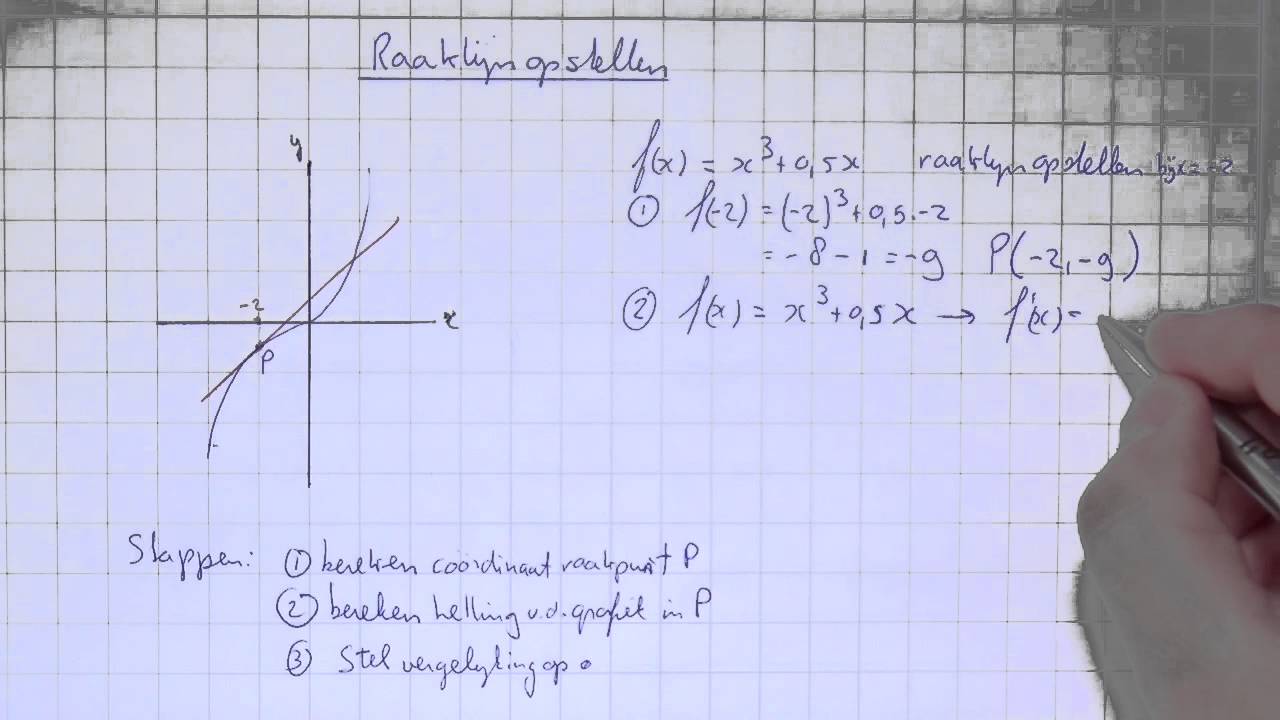 Raaklijn opstellen
y
f(x) = x³ + 0,5x raaklijn opstellen bij x = -2
① f(-2) = (-2)³ + 0,5 · -2
= -8 - 1 = -9 P(-2, -9)
② f(x) = x³ + 0,5x → f'(x) =
-2
x
P
Stappen: ① bereken coördinaat raakpunt P
② bereken helling v.d. grafiek in P
③ Stel vergelijking op